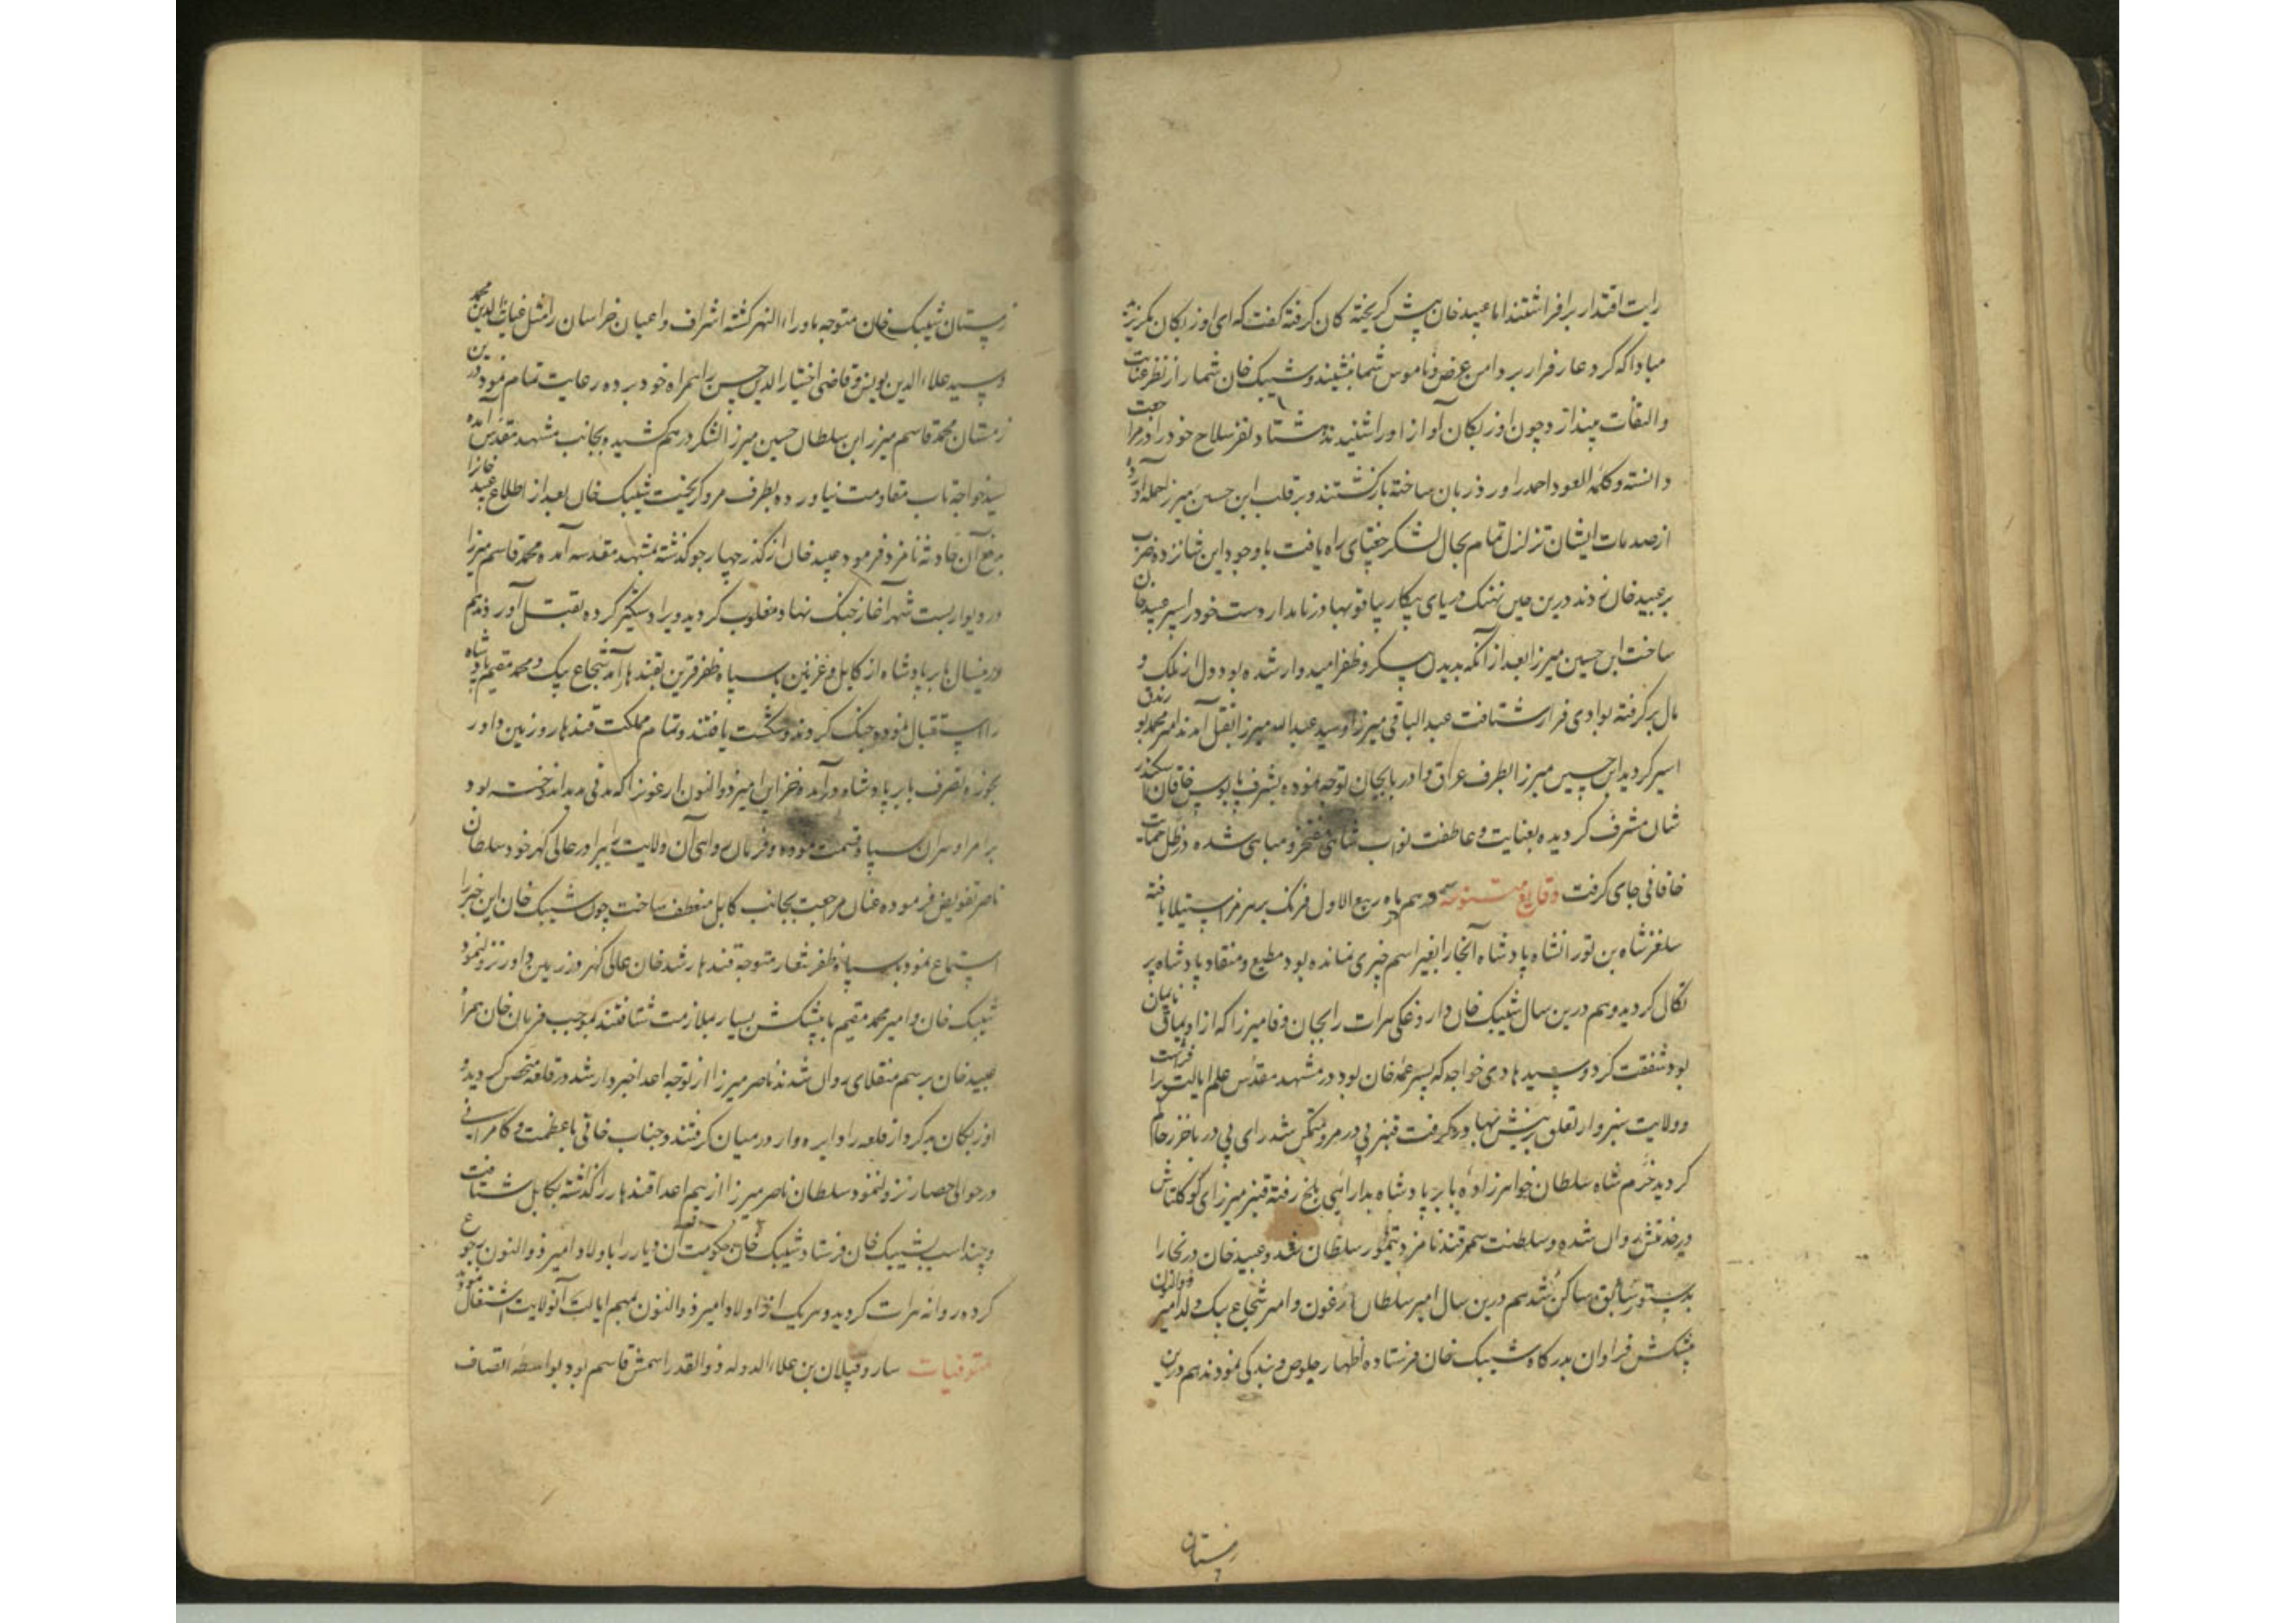 رایت اقتدار برافراشتند اما عبید خان پیش گریخته کان گرفته گفت که ای اوزبکان مگریزید
مبادا که گرد عار فرار بر دامن عرض و ناموس شما نشیند و شیبک خان شما را از نظر عنایت
و التفات بیندازد چون اوزبکان آواز او را شنیدند هشتاد نفر سلاح خود را در مراجعت
دانسته و کلمه العود احمد را ورد زبان ساخته بازگشتند و بر قلب ابن حسین میرزا حمله آورده
از صدمات ایشان تزلزل تمام بحال لشکر جغتای راه یافت با وجود این شانزده ضرب
بر عبید خان زدند درین حین نهنک دریای پیکار بیاقو بهادر نامدار دست خود را سپر عبید خان
ساخت ابن حسین میرزا بعد از آنکه بدیدن پسکر و ظفر امیدوار شده بود دل از ملک و
مال برگرفته بوادی فرار شتافت عبد الباقی میرزا و سید عبد الله میرزا بقتل آمدند امیر محمد بورندق
اسیر گردید ابن حسین میرزا بطرف عراق و ادربایجان توجه نموده بشرف پابوس خاقان سکندر
شان مشرف گردیده بعنایت و عاطفت نواب شاهی مفتخر و مباهی شده در ظل حمایت
خاقانی جای گرفت وقایع متنوعه هم در ماه ربیع الاول فرنک بر هرمز استیلا یافته
سلغرشاه بن تورانشاه پادشاه آنجا را بغیر اسم چیزی نمانده بود مطیع و منقاد پادشاه پر
تکال گردید و هم درین سال شیبک خان داروغکی هرات را بجان وفا میرزا که از اویماق نایمان
بود شفقت کرد و سید هادی خواجه که پسر عمه خان بود در مشهد مقدس علم ایالت افراشت
و ولایت سبزوار تعلق بریش بهادر گرفت قنبر بی در مرو متمکن شد رای بی در باخرز حاکم
گردید خرم شاه سلطان خواهرزاده بابر پادشاه بدارائی بلخ رفته قنبر میرزای کوکلتاش
در خدمتش روان شده و سلطنت سمرقند نامزد تیمور سلطان شد و عبید خان در بخارا
بدستور سابق ساکن شد هم درین سال امیر سلطان ارغون و امیر شجاع بیک ولد امیر ذوالنون
پیشکش فراوان بدرگاه شیبک خان فرستاده اظهار خلوص و بندگی نمودند هم درین
زمستان
زمستان شیبک خان متوجه ماوراء النهر گشته اشراف و اعیان خراسان را مثل غیاث الدین محمد
و سید علاء الدین یونس و قاضی اختیار الدین حسن را همراه خود برده رعایت تمام نمود درین
زمستان محمد قاسم میرزا ابن سلطان حسین میرزا لشکر درهم کشیده و بجانب مشهد مقدس آمده
سید خواجه تاب مقاومت نیاورده بطرف مرو گریخت شیبک خان بعد از اطلاع عبید خان را
برفع آن حادثه نامزد فرمود عبید خان از گذر چهار جو گذشته بمشهد مقدسه آمده محمد قاسم میرزا
در دیوار بست شهر آغاز جنک نهاد مغلوب گردید و یرا دستگیر کرده بقتل آوردند هم
درین سال بابر پادشاه از کابل و غزنین با سپاه ظفر قرین بقندهار آمد شجاع بیک و محمد مقیم بادشاه
را استقبال نموده جنک کردند و شکست یافتند و تمام مملکت قندهار و زمین داور
بحوزه تصرف بابر پادشاه درآمد و خزاین امیر ذو النون ارغون را که مدتی مدید اندوخته بود
بر امرا و سران سپاه قسمت نموده و فرمان روائی آن ولایت را ببرادر عالی گهر خود سلطان
ناصر تفویض فرموده عنان مراجعت بجانب کابل منعطف ساخت چون شیبک خان این خبر را
استماع نمود با سپاه ظفر شعار متوجه قندهار شد خان عالی گهر در زمین داور نزول نمود
شیبک خان و امیر محمد مقیم با پیشکش بسیار بملازمت شتافتند بموجب فرمان خان همراه
عبید خان برسم منقلای روان شدند ناصر میرزا از توجه اعدا خبردار شد در قلعه متحصن گردید و
اوزبکان بد کردار قلعه را دایره وار در میان گرفتند و جناب خانی با عظمت و کامرانی
در حوالی حصار نزول نمود سلطان ناصر میرزا از بیم اعدا قندهار را گذاشته بکابل شتافت
و چند اسب بشیبک خان فرستاد شیبک خان حکومت آن دیار را باولاد امیر ذو النون رجوع
کرده روانه هرات گردید و هر یک از اولاد امیر ذو النون بمهم ایالت آنولایت اشتغال نمودند
متوفیات ساروقپلان بن علاء الدوله ذو القدر اسمش قاسم بود بواسطه اتصاف